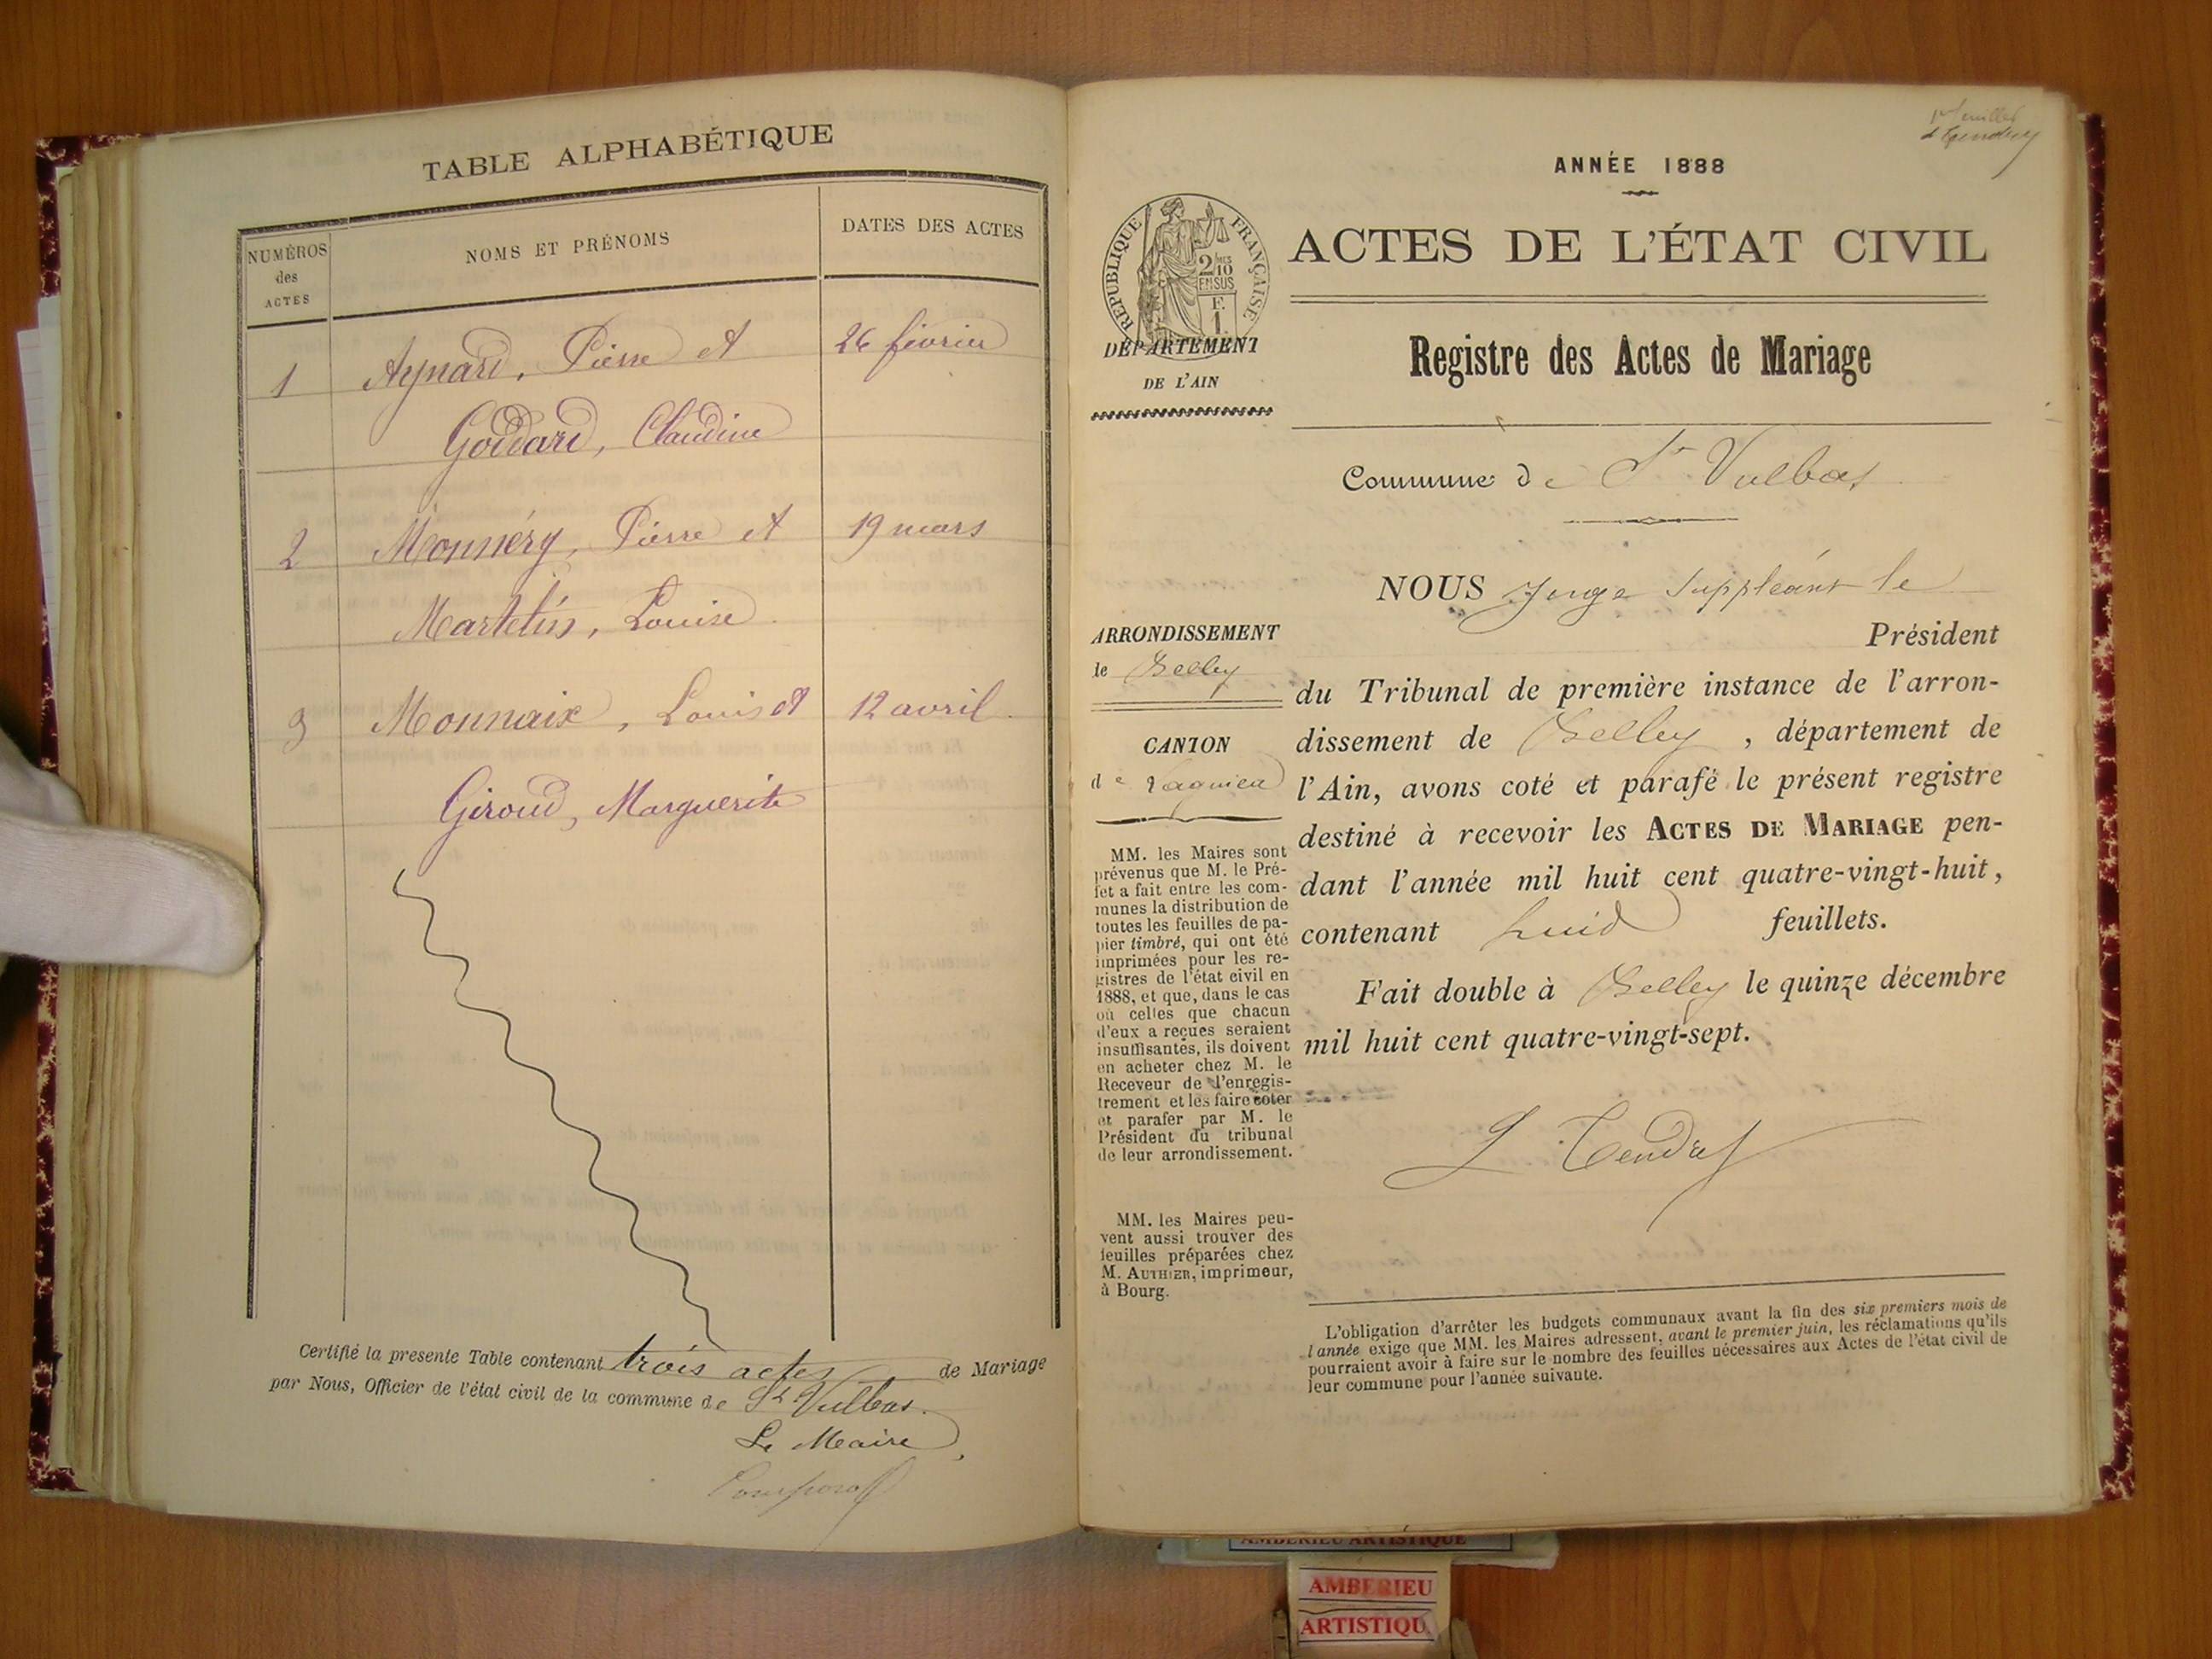 TABLE ALPHABÉTIQUE
NUMÉROS
des
ACTES
NOMS ET PRÉNOMS
DATES DES ACTES
1 Aynard, Pierre et 26 février
Goddard, Claudine
2 Monnéry, Pierre et 19 mars
Martelin, Louise
3 Monnaix, Louis et 12 avril
Giroud, Marguerite
Certifié la presente Table contenant trois actes de Mariage
par Nous, Officier de l'état civil de la commune de St Vulbas.
Le Maire
1er feuillet
ANNÉE 1888
RÉPUBLIQUE FRANÇAISE
2/10
EN SUS
F.
1.
ACTES DE L'ÉTAT CIVIL
DÉPARTEMENT
DE L'AIN
Registre des Actes de Mariage
Commune de St Vulbas
ARRONDISSEMENT
de Belley
CANTON
de Lagnieu
MM. les Maires sont
prévenus que M. le Pré-
fet a fait entre les com-
munes la distribution de
toutes les feuilles de pa-
pier timbré, qui ont été
imprimées pour les re-
gistres de l'état civil en
1888, et que, dans le cas
où celles que chacun
d'eux a reçues seraient
insuffisantes, ils doivent
en acheter chez M. le
Receveur de l'enregis-
trement et les faire coter
et parafer par M. le
Président du tribunal
de leur arrondissement.
MM. les Maires peu-
vent aussi trouver des
feuilles préparées chez
M. AUTHIER, imprimeur,
à Bourg.
NOUS Juge Suppléant le
Président
du Tribunal de première instance de l'arron-
dissement de Belley, département de
l'Ain, avons coté et parafé le présent registre
destiné à recevoir les ACTES DE MARIAGE pen-
dant l'année mil huit cent quatre-vingt-huit,
contenant huit feuillets.
Fait double à Belley le quinze décembre
mil huit cent quatre-vingt-sept.
L'obligation d'arrêter les budgets communaux avant la fin des six premiers mois de
l'année exige que MM. les Maires adressent, avant le premier juin, les réclamations qu'ils
pourraient avoir à faire sur le nombre des feuilles nécessaires aux Actes de l'état civil de
leur commune pour l'année suivante.
AMBERIEU ARTISTIQUE
AMBERIEU
ARTISTIQU